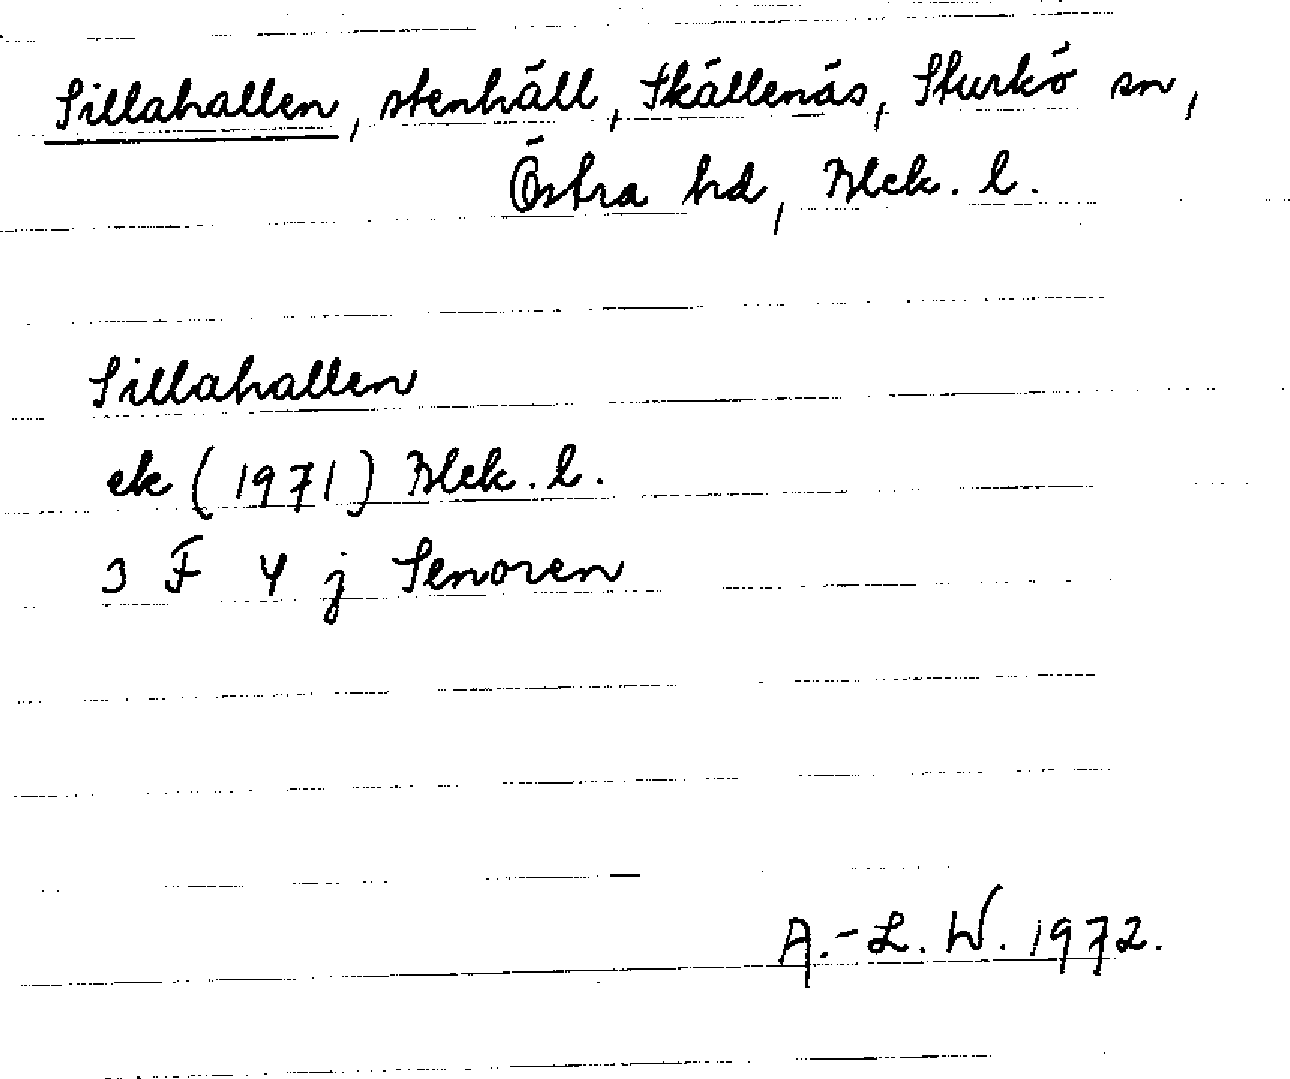 Sillahallen, stenhäll, Skällenäs, Sturkö sn,
Östra hd, Blek. l.
Sillahallen
ek (1971) Blek. l.
3 F 4 j Senoren
A.-L. W. 1972.